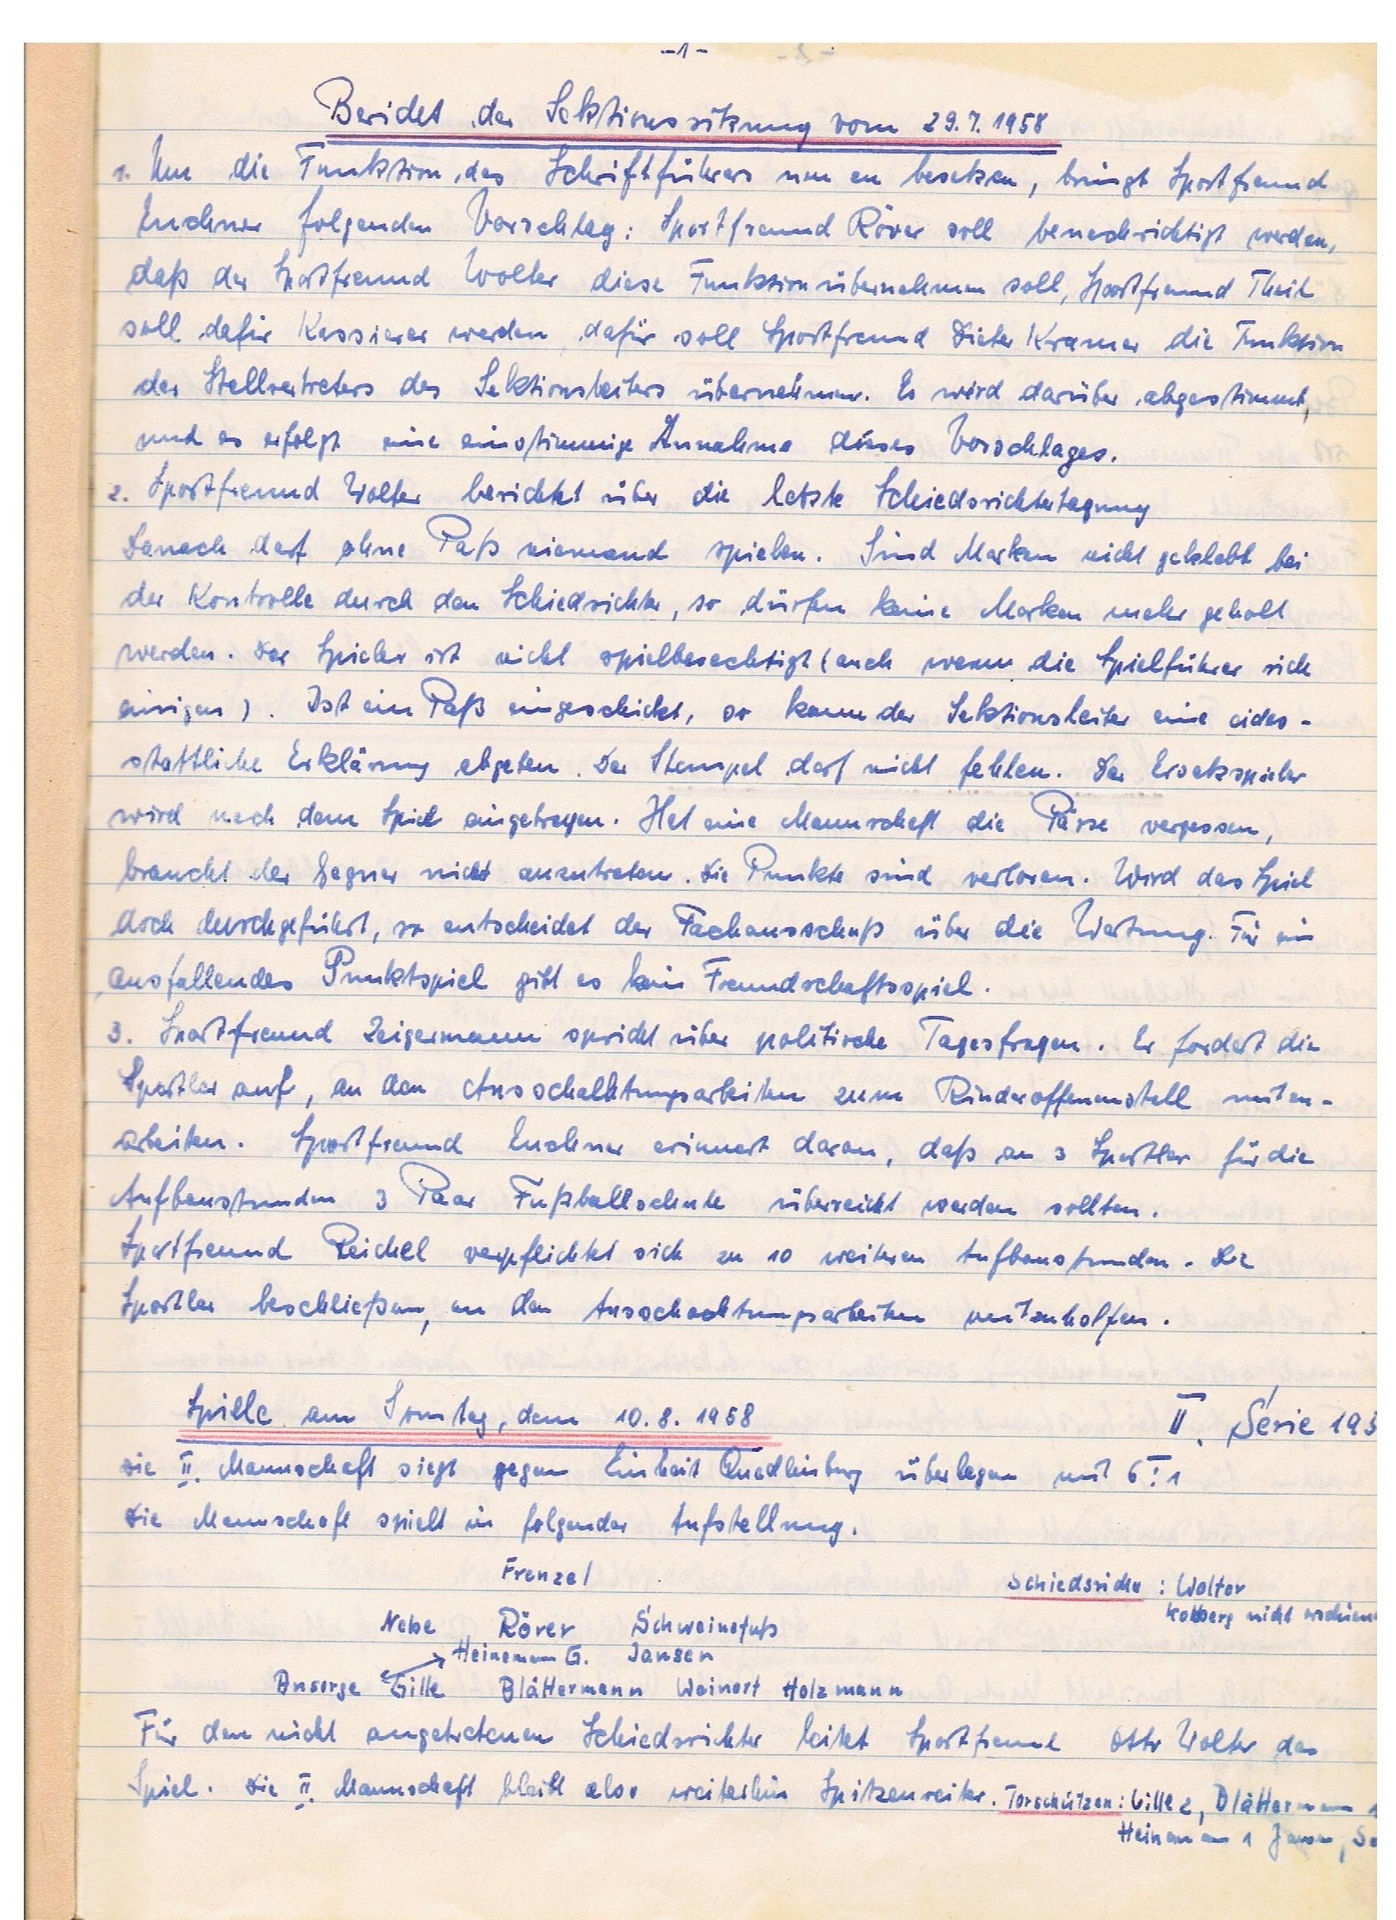 -1-
Bericht der Sektionssitzung vom 29.7.1958
1. Um die Funktion des Schriftführers neu zu besetzen, bringt Sportfreund
Enchner folgenden Vorschlag: Sportfreund Röver soll benachrichtigt werden,
daß der Sportfreund Wolter diese Funktion übernehmen soll, Sportfreund Theil
soll dafür Kassierer werden, dafür soll Sportfreund Dieter Kramer die Funktion
des Stellvertreters des Sektionsleiters übernehmen. Es wird darüber abgestimmt,
und es erfolgt eine einstimmige Annahme dieses Vorschlages.
2. Sportfreund Wolter berichtet über die letzte Schiedsrichtertagung
Danach darf ohne Paß niemand spielen. Sind Marken nicht geklebt bei
der Kontrolle durch den Schiedsrichter, so dürfen keine Marken mehr geholt
werden. Der Spieler ist nicht spielberechtigt (auch wenn die Spielführer sich
einigen). Ist ein Paß eingeschickt, so kann der Sektionsleiter eine eides-
stattliche Erklärung abgeben. Der Stempel darf nicht fehlen. Der Ersatzspieler
wird nach dem Spiel eingetragen. Hat eine Mannschaft die Pässe vergessen,
braucht der Gegner nicht anzutreten. Die Punkte sind verloren. Wird das Spiel
doch durchgeführt, so entscheidet der Fachausschuß über die Wertung. Für ein
ausfallendes Punktspiel gibt es kein Freundschaftsspiel.
3. Sportfreund Zeigermann spricht über politische Tagesfragen. Er fordert die
Sportler auf, an den Ausschachtungsarbeiten zum Rinderoffenstall mitzu-
arbeiten. Sportfreund Enchner erinnert daran, daß an 3 Sportler für die
Aufbaustunden 3 Paar Fußballschuhe überreicht werden sollten.
Sportfreund Reichel verpflichtet sich zu 10 weiteren Aufbaustunden. Die
Sportler beschließen, an den Ausschachtungsarbeiten mitzuhelfen.
Spiele am Sonntag, dem 10.8.1958 II. Serie 195
Die II. Mannschaft siegt gegen Einheit Quedlinburg überlegen mit 6:1
Die Mannschaft spielt in folgender Aufstellung.
Frenzel
Schiedsrichter : Wolter
Kolberg nicht erschienen
Nebe Rörer Schweinefuß
Heinemann G. Jansen
Ansorge Gille Blättermann Weinert Holzmann
Für den nicht angetretenen Schiedsrichter leitet Sportfreund Otto Wolter das
Spiel. Die II. Mannschaft bleibt also weiterhin Spitzenreiter. Torschützen: Gille 2, Blättermann 1
Heinemann 1 Jansen,